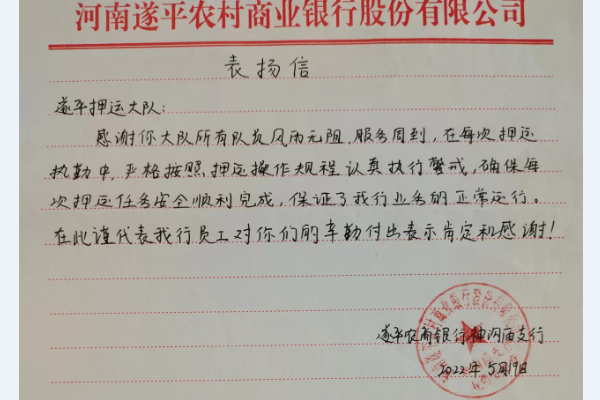 河南遂平农村商业银行股份有限公司
表扬信
遂平押运大队:
感谢你大队所有队员风雨无阻,服务周到,在每次押运
执勤中,严格按照押运操作规程认真执行警戒,确保每
次押运任务安全顺利完成,保证了我行业务的正常运行。
在此谨代表我行员工对你们的辛勤付出表示肯定和感谢!
遂平农商银行神沟庙支行
2022年5月19日